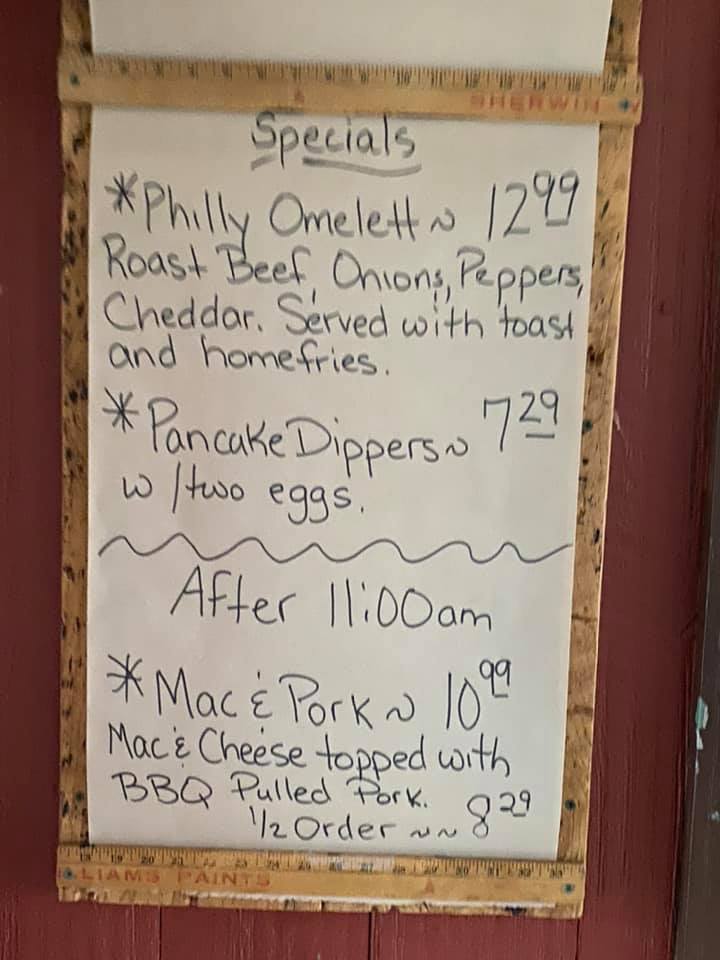 SHERWIN
Specials
*Philly Omelett ~ 12.99
Roast Beef, Onions, Peppers,
Cheddar. Served with toast
and homefries.
*Pancake Dippers ~ 7.29
w/two eggs.
After 11:00am
*Mac & Pork ~ 10.99
Mac & Cheese topped with
BBQ Pulled Pork.
1/2 Order ~~ 8.29
LLIAMS PAINTS